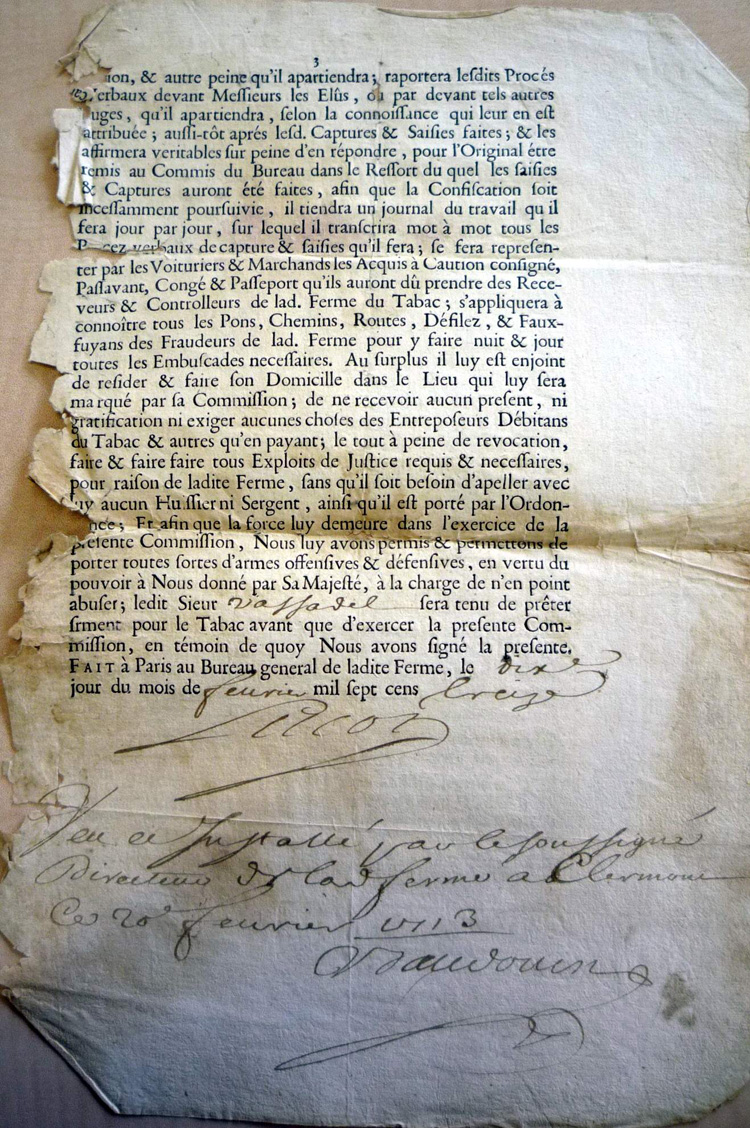 3
ion, & autre peine qu'il apartiendra; raportera lesdits Procés
Verbaux devant Messieurs les Elûs, ou par devant tels autres
uges, qu'il apartiendra, selon la connoissance qui leur en est
attribuée; aussi-tôt aprés lesd. Captures & Saisies faites; & les
affirmera veritables sur peine d'en répondre, pour l'Original étre
remis au Commis du Bureau dans le Ressort du quel les saisies
& Captures auront été faites, afin que la Confiscation soit
incessamment poursuivie, il tiendra un journal du travail qu il
fera jour par jour, sur lequel il transcrira mot à mot tous les
Procez verbaux de capture & saisies qu'il fera; se fera represen-
ter par les Voituriers & Marchands les Acquis à Caution consigné,
Passavant, Congé & Passeport qu'ils auront dû prendre des Rece-
veurs & Controlleurs de lad. Ferme du Tabac; s'appliquera à
connoître tous les Pons, Chemins, Routes, Défilez, & Faux-
fuyans des Fraudeurs de lad. Ferme pour y faire nuit & jour
toutes les Embuscades necessaires. Au surplus il luy est enjoint
de resider & faire son Domicille dans le Lieu qui luy sera
marqué par sa Commission; de ne recevoir aucun present, ni
gratification ni exiger aucunes choses des Entreposeurs Débitans
du Tabac & autres qu'en payant; le tout à peine de revocation,
faire & faire faire tous Exploits de Justice requis & necessaires,
pour raison de ladite Ferme, sans qu'il soit besoin d'apeller avec
uy aucun Huissier ni Sergent, ainsi qu'il est porté par l'Ordon-
nce; Et afin que la force luy demeure dans l'exercice de la
presente Commission, Nous luy avons permis & permettons de
porter toutes sortes d'armes offensives & défensives, en vertu du
pouvoir à Nous donné par Sa Majesté, à la charge de n'en point
abuser; ledit Sieur Vassadel sera tenu de prêter
srment pour le Tabac avant que d'exercer la presente Com-
mission, en témoin de quoy Nous avons signé la presente.
FAIT à Paris au Bureau general de ladite Ferme, le dixe
jour du mois de feurier mil sept cens treize
Veu et Installé par le soussigné
Directeur de lad ferme a Clermont
Ce 20e feurier 1713
Baudouin